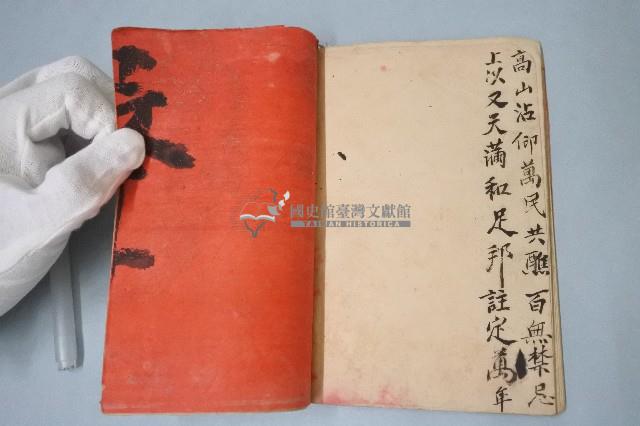 高山沾仰萬民共醮百無禁忌
上以又天滿和足邦註定萬年
國史館臺灣文獻館
TAIWAN HISTORICA